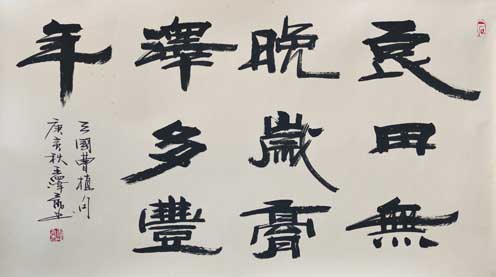 良田無
晚歲膏
澤多豐
年
三國曹植句
庚秋書